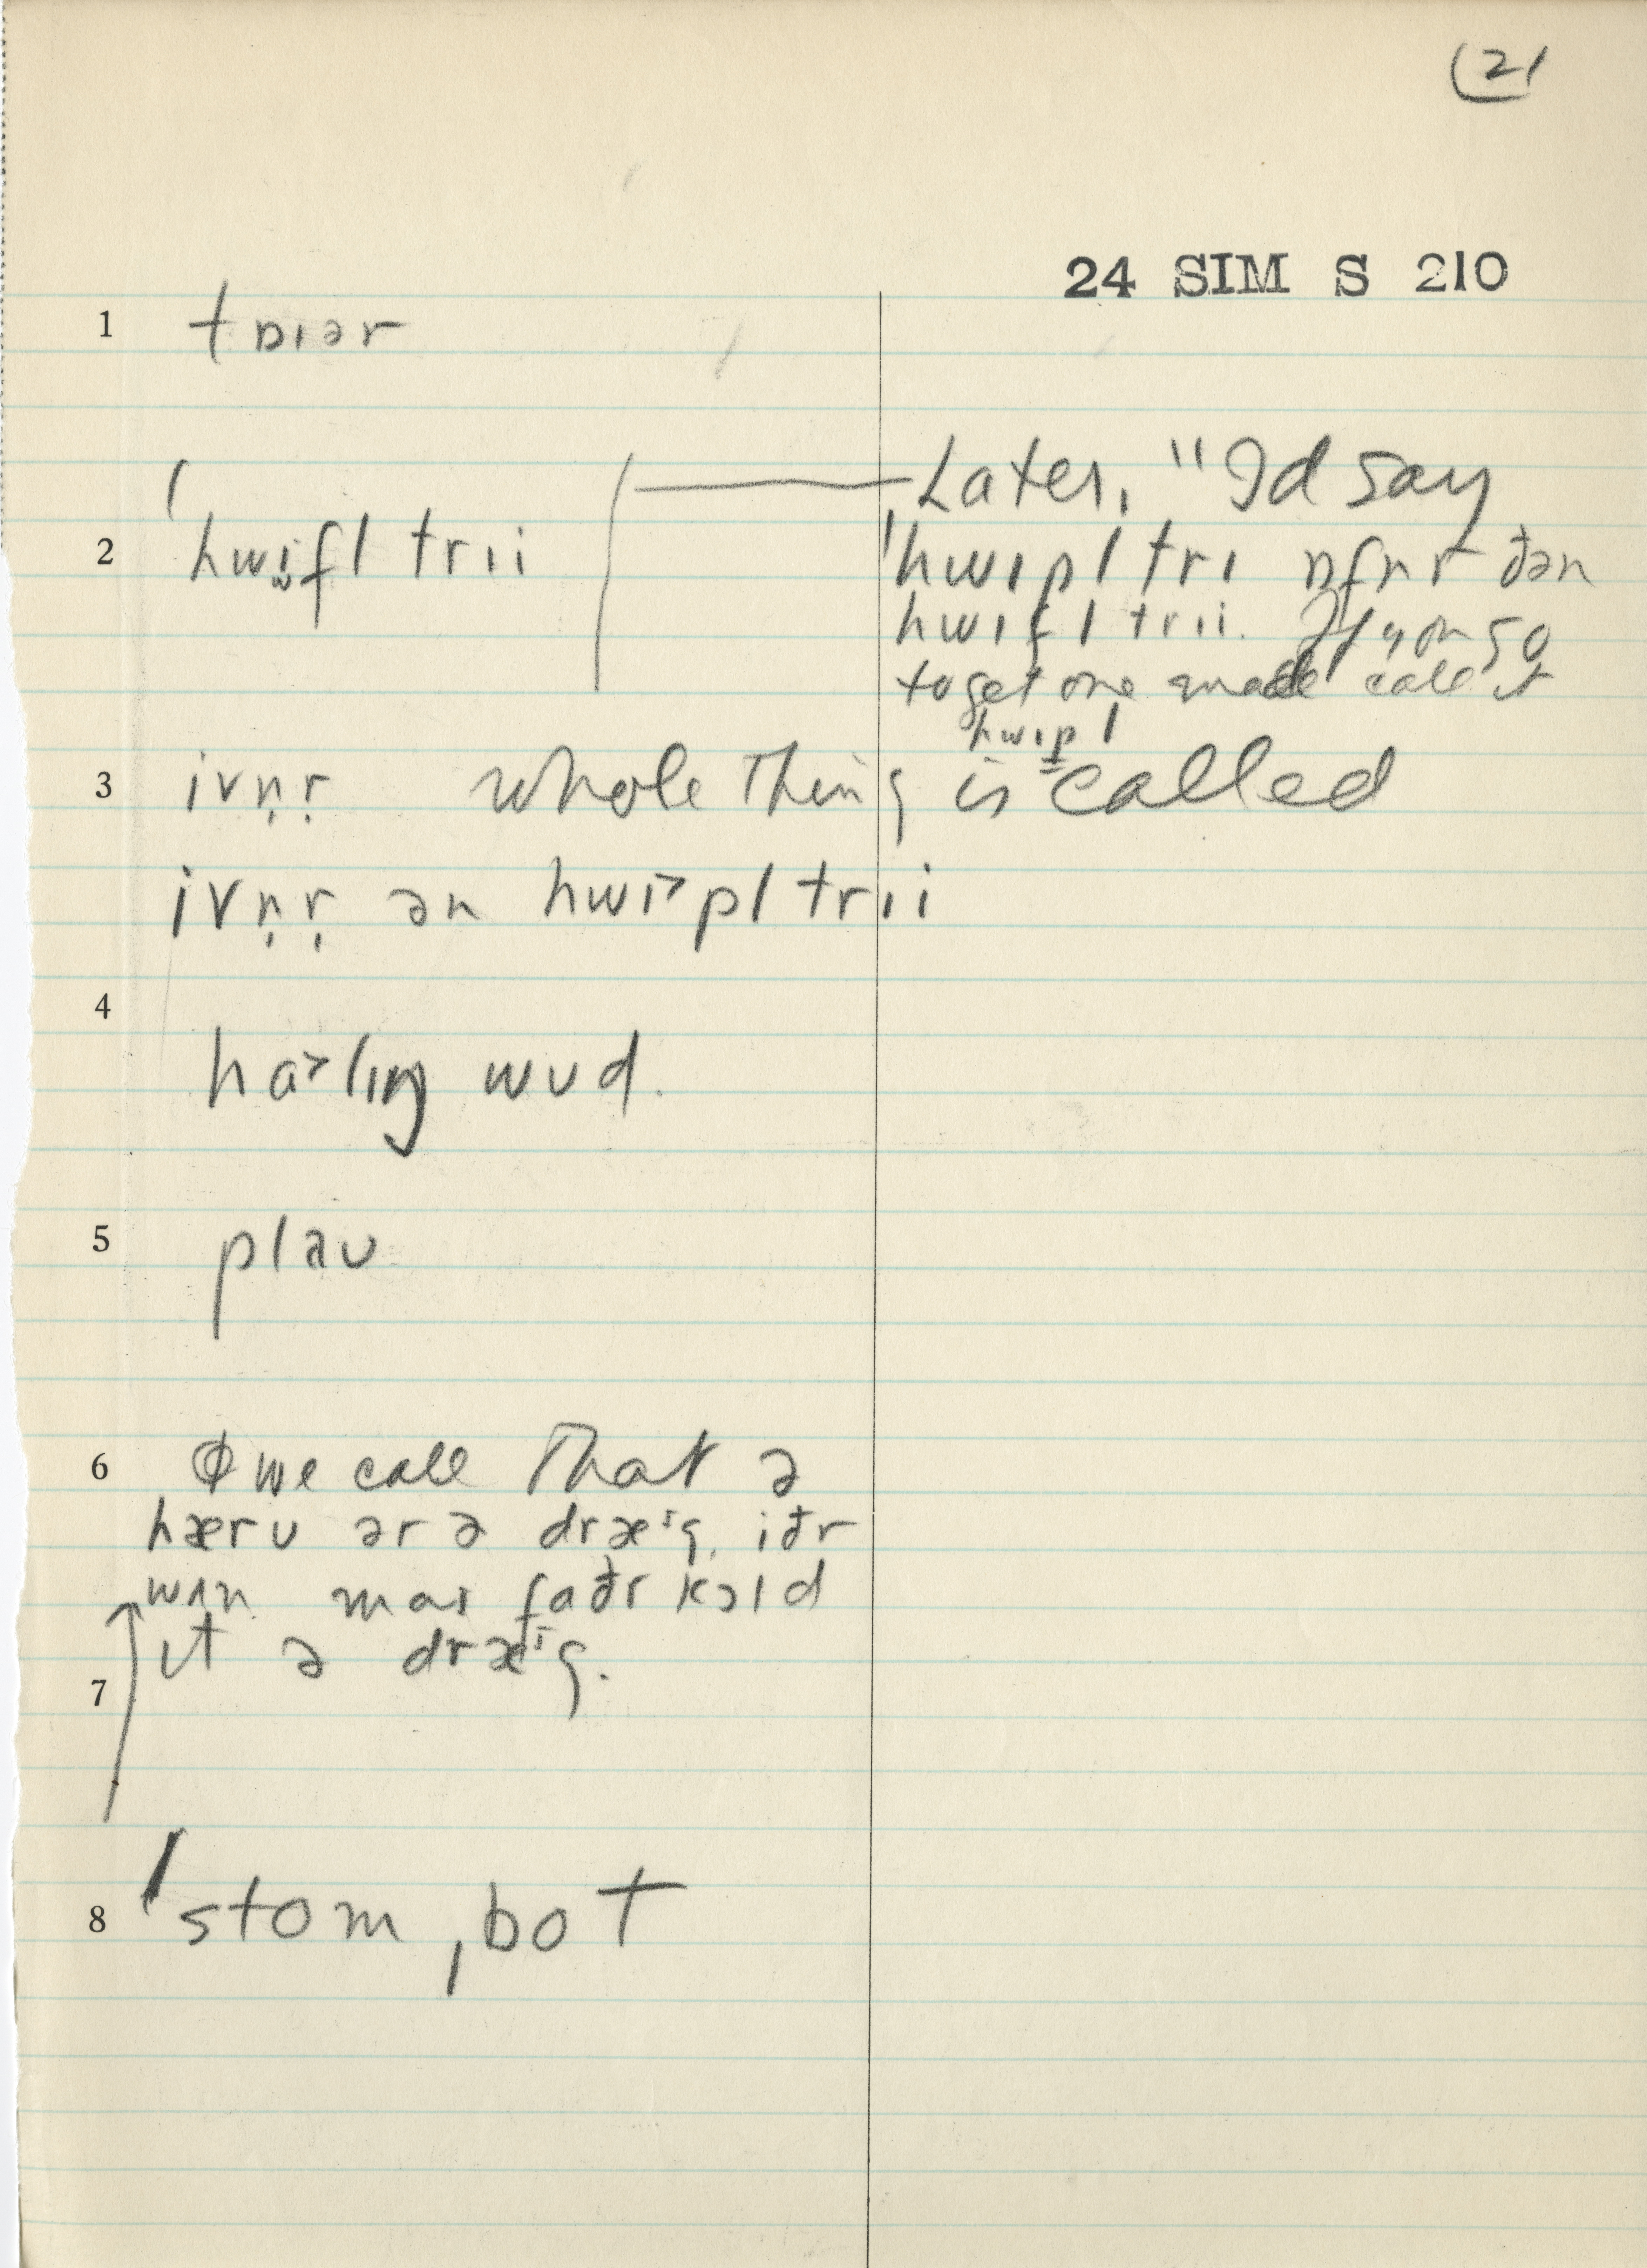 (21
24 SIM S 210
1 tɒɪər
2 ˈhwɪfl trɪi
Later, "I'd say
ˈhwɪpl tri ɒfnr ðən
hwɪfl trɪi. If you go
to get one made call it
hwɪpl
3 ivn̩r̩ whole thing is called
ivn̩r̩ ən hwɪ˃pl trɪi
4
ha˃lɪŋ wʊd.
5 plaʊ
6 we call that ə
hærʊ ər ə dræᶦg. iðr
wʌn maɪ faðr kɔld
ɪt ə dræᶦg.
7
8 ˈstomˌbot